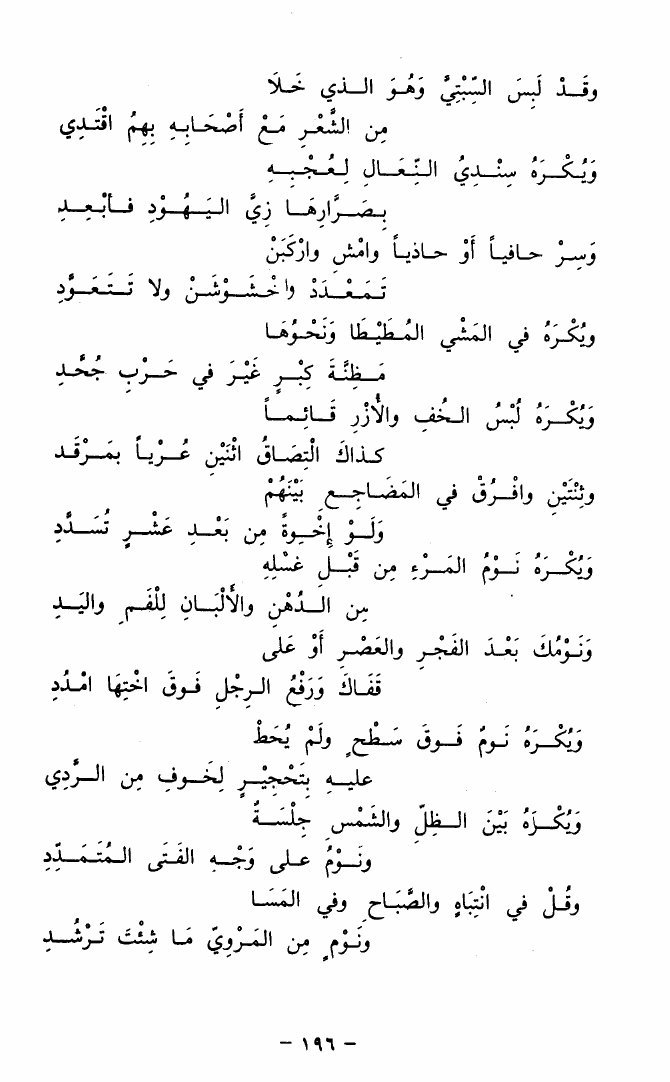 وقَدْ لَبِسَ السِّبْتِيَّ وَهُوَ الـذي خَلَا
مِن الشَّعْرِ مَعْ أَصْحَابِهِ بِهِمُ اقْتَدِي
وَيُكْرَهُ سِنْدِيُّ النِّعَالِ لِعُجْبِهِ
بِصَرَّارِهَا زِيَّ اليَهُوْدِ فَأَبْعِدِ
وَسِرْ حافياً أَوْ حاذياً وامْشِ وارْكَبَنْ
تَمَعْدَدْ واخْشَوْشَنْ ولا تَتَعَوَّدِ
ويُكْرَهُ في المَشْيِ المُطَيْطَا وَنَحْوُهَا
مَظِنَّةَ كِبْرٍ غَيْرَ في حَرْبِ جُحَّدِ
وَيُكْرَهُ لُبْسُ الخُفِ والأُزْرِ قَائِماً
كذاكَ الْتِصَاقُ اثْنَيْنِ عُرْياً بمَرْقَدِ
وثِنْتَينِ وافْرُقْ في المَضَاجِعِ بَيْنَهُمْ
وَلَوْ إِخْوَةً مِن بَعْدِ عَشْرٍ تُسَدَّدِ
وَيُكْرَهُ نَوْمُ المَرْءِ مِن قَبْلِ غَسْلِهِ
مِن الدُّهْنِ والأَلْبَانِ لِلْفَمِ واليَدِ
وَنَوْمُكَ بَعْدَ الفَجْرِ والعَصْرِ أَوْ عَلى
قَفَاكَ وَرَفْعُ الرِجْلِ فَوقَ اخْتِهَا امْدُدِ
وَيُكْرَهُ نَومٌ فَوقَ سَطْحٍ ولَمْ يُحَطْ
عليهِ بتَحْجِيْرٍ لِخَوفٍ مِن الرَّدِي
وَيُكْرَهُ بَيْنَ الظِلِّ والشَمْسِ جِلْسَةٌ
ونَوْمٌ على وَجْهِ الفَتَى المُتَمَدِّدِ
وقُلْ في انْتِبَاهٍ والصَّبَاحِ وفي المَسَا
ونَوْمٍ مِن المَرْوِيِّ مَا شِئْتَ تَرْشُدِ
- ١٩٦ -